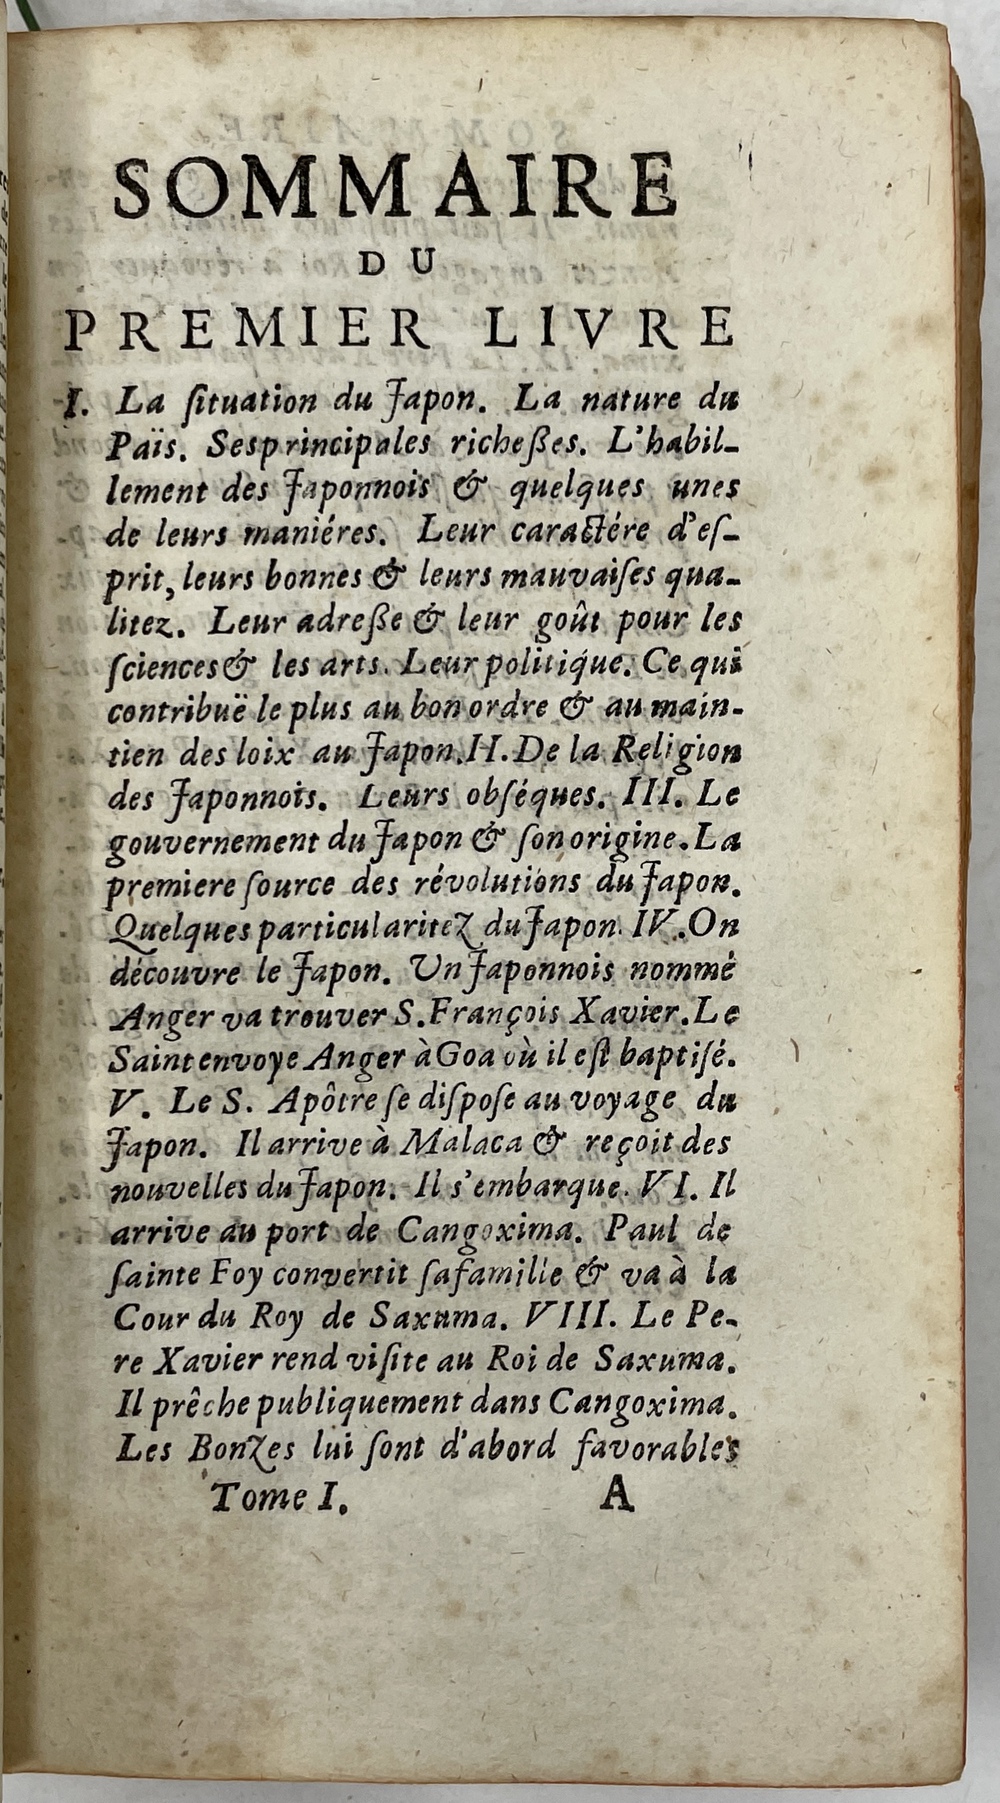 SOMMAIRE
DU
PREMIER LIVRE
I. La ſituation du Japon. La nature du
Païs. Sesprincipales richeßes. L'habil-
lement des Japonnois & quelques unes
de leurs maniéres. Leur caractére d'eſ-
prit, leurs bonnes & leurs mauvaiſes qua-
litez. Leur adreße & leur goût pour les
ſciences & les arts. Leur politique. Ce qui
contribuë le plus au bon ordre & au main-
tien des loix au Japon. II. De la Religion
des Japonnois. Leurs obſéques. III. Le
gouvernement du Japon & ſon origine. La
premiere ſource des révolutions du Japon.
Quelques particularitez du Japon. IV. On
découvre le Japon. Un Japonnois nommé
Anger va trouver S. François Xavier. Le
Saint envoye Anger à Goa où il eſt baptiſé.
V. Le S. Apôtre ſe diſpoſe au voyage du
Japon. Il arrive à Malaca & reçoit des
nouvelles du Japon. Il s'embarque. VI. Il
arrive au port de Cangoxima. Paul de
ſainte Foy convertit ſa famille & va à la
Cour du Roy de Saxuma. VIII. Le Pe-
re Xavier rend viſite au Roi de Saxuma.
Il prêche publiquement dans Cangoxima.
Les Bonzes lui ſont d'abord favorables
Tome I. A